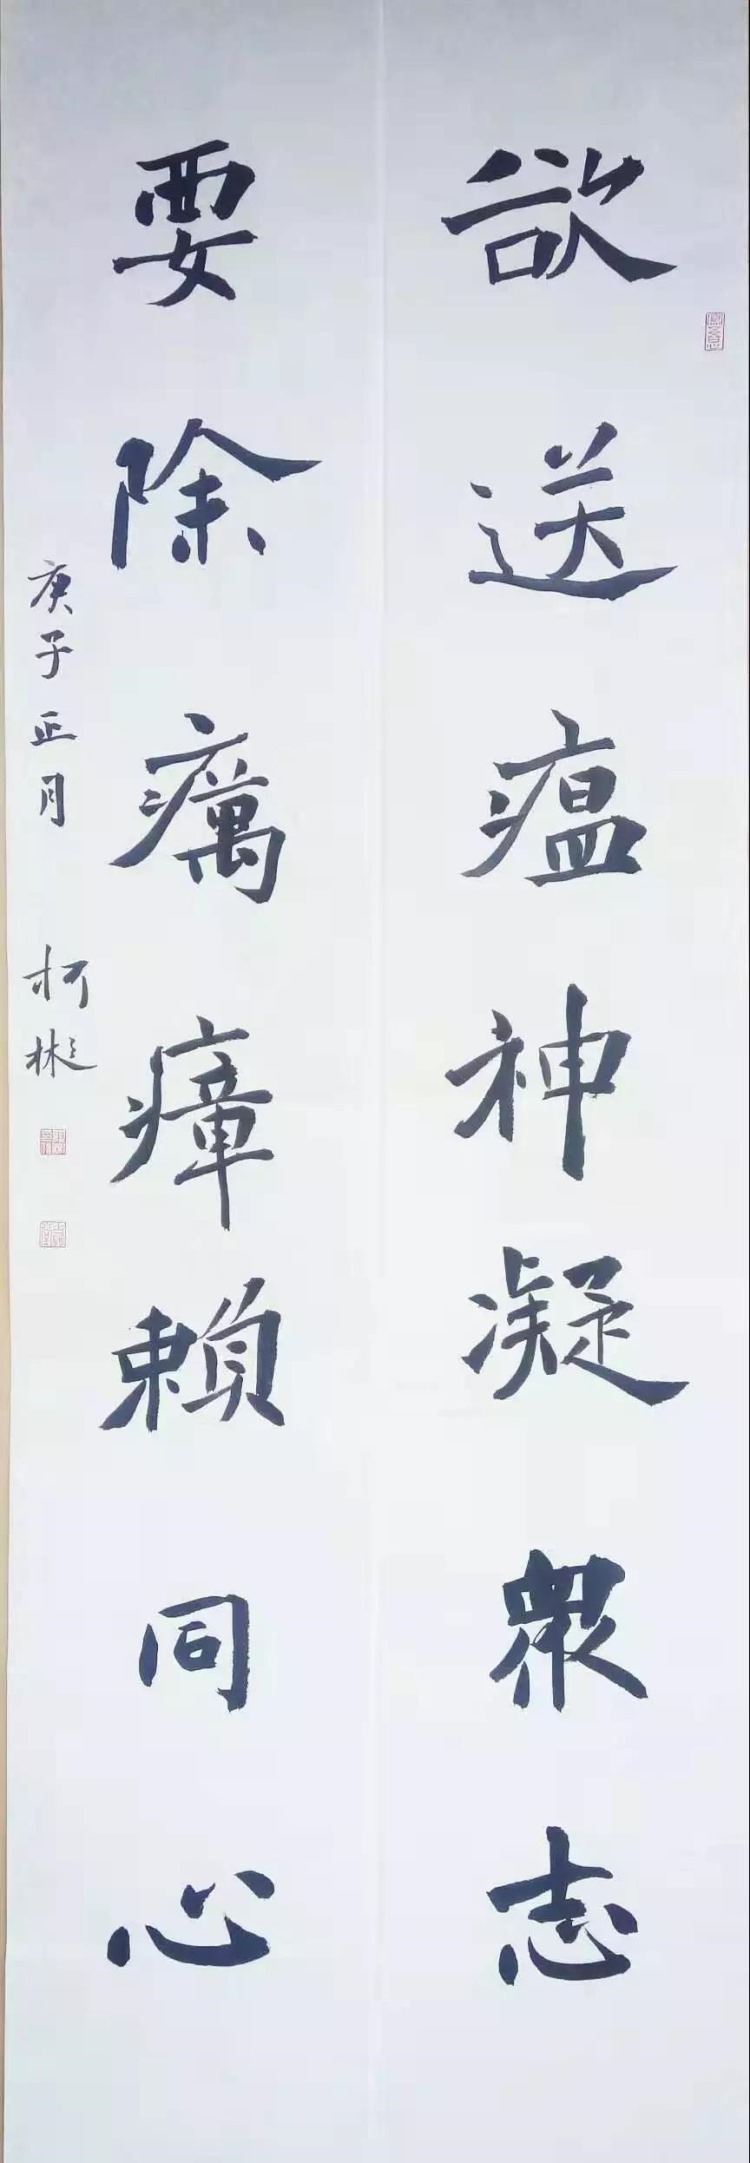 欲送瘟神凝眾志
要除癘瘴賴同心
庚子正月 柯彬